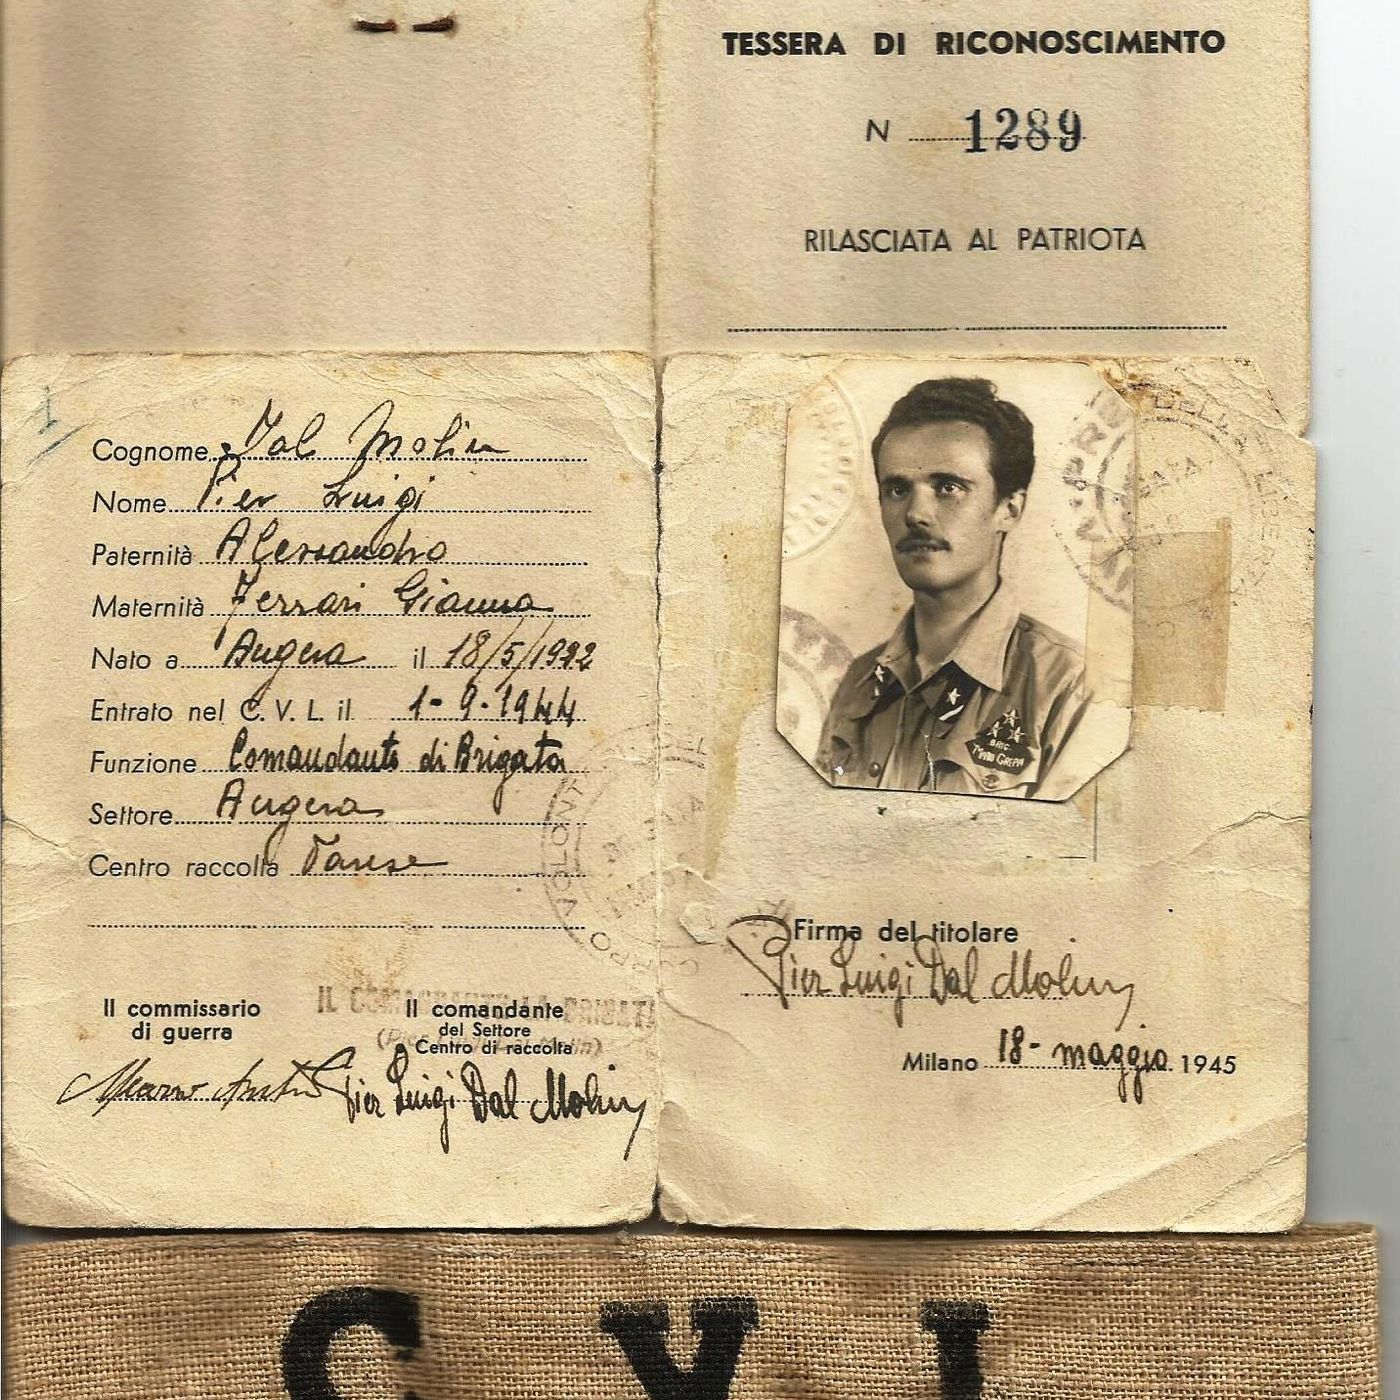 TESSERA DI RICONOSCIMENTO
N 1289
RILASCIATA AL PATRIOTA
1
Cognome Dal Molin
Nome Pier Luigi
Paternità Alessandro
Maternità Ferrari Gianna
Nato a Angera il 18/5/1922
Entrato nel C. V. L. il 1-9-1944
Funzione Comandante di Brigata
Settore Angera
Centro raccolta Varese
Il commissario
di guerra
IL COMANDANTE LA BRIGATA
(Pier Luigi Dal Molin)
Il comandante
del Settore
Centro di raccolta
Pier Luigi Dal Molin
CORPO VOLONT DEL
BRIG.
Firma del titolare
Pier Luigi Dal Molin
Milano 18- maggio 1945
DELLA LIBERTA
C V L